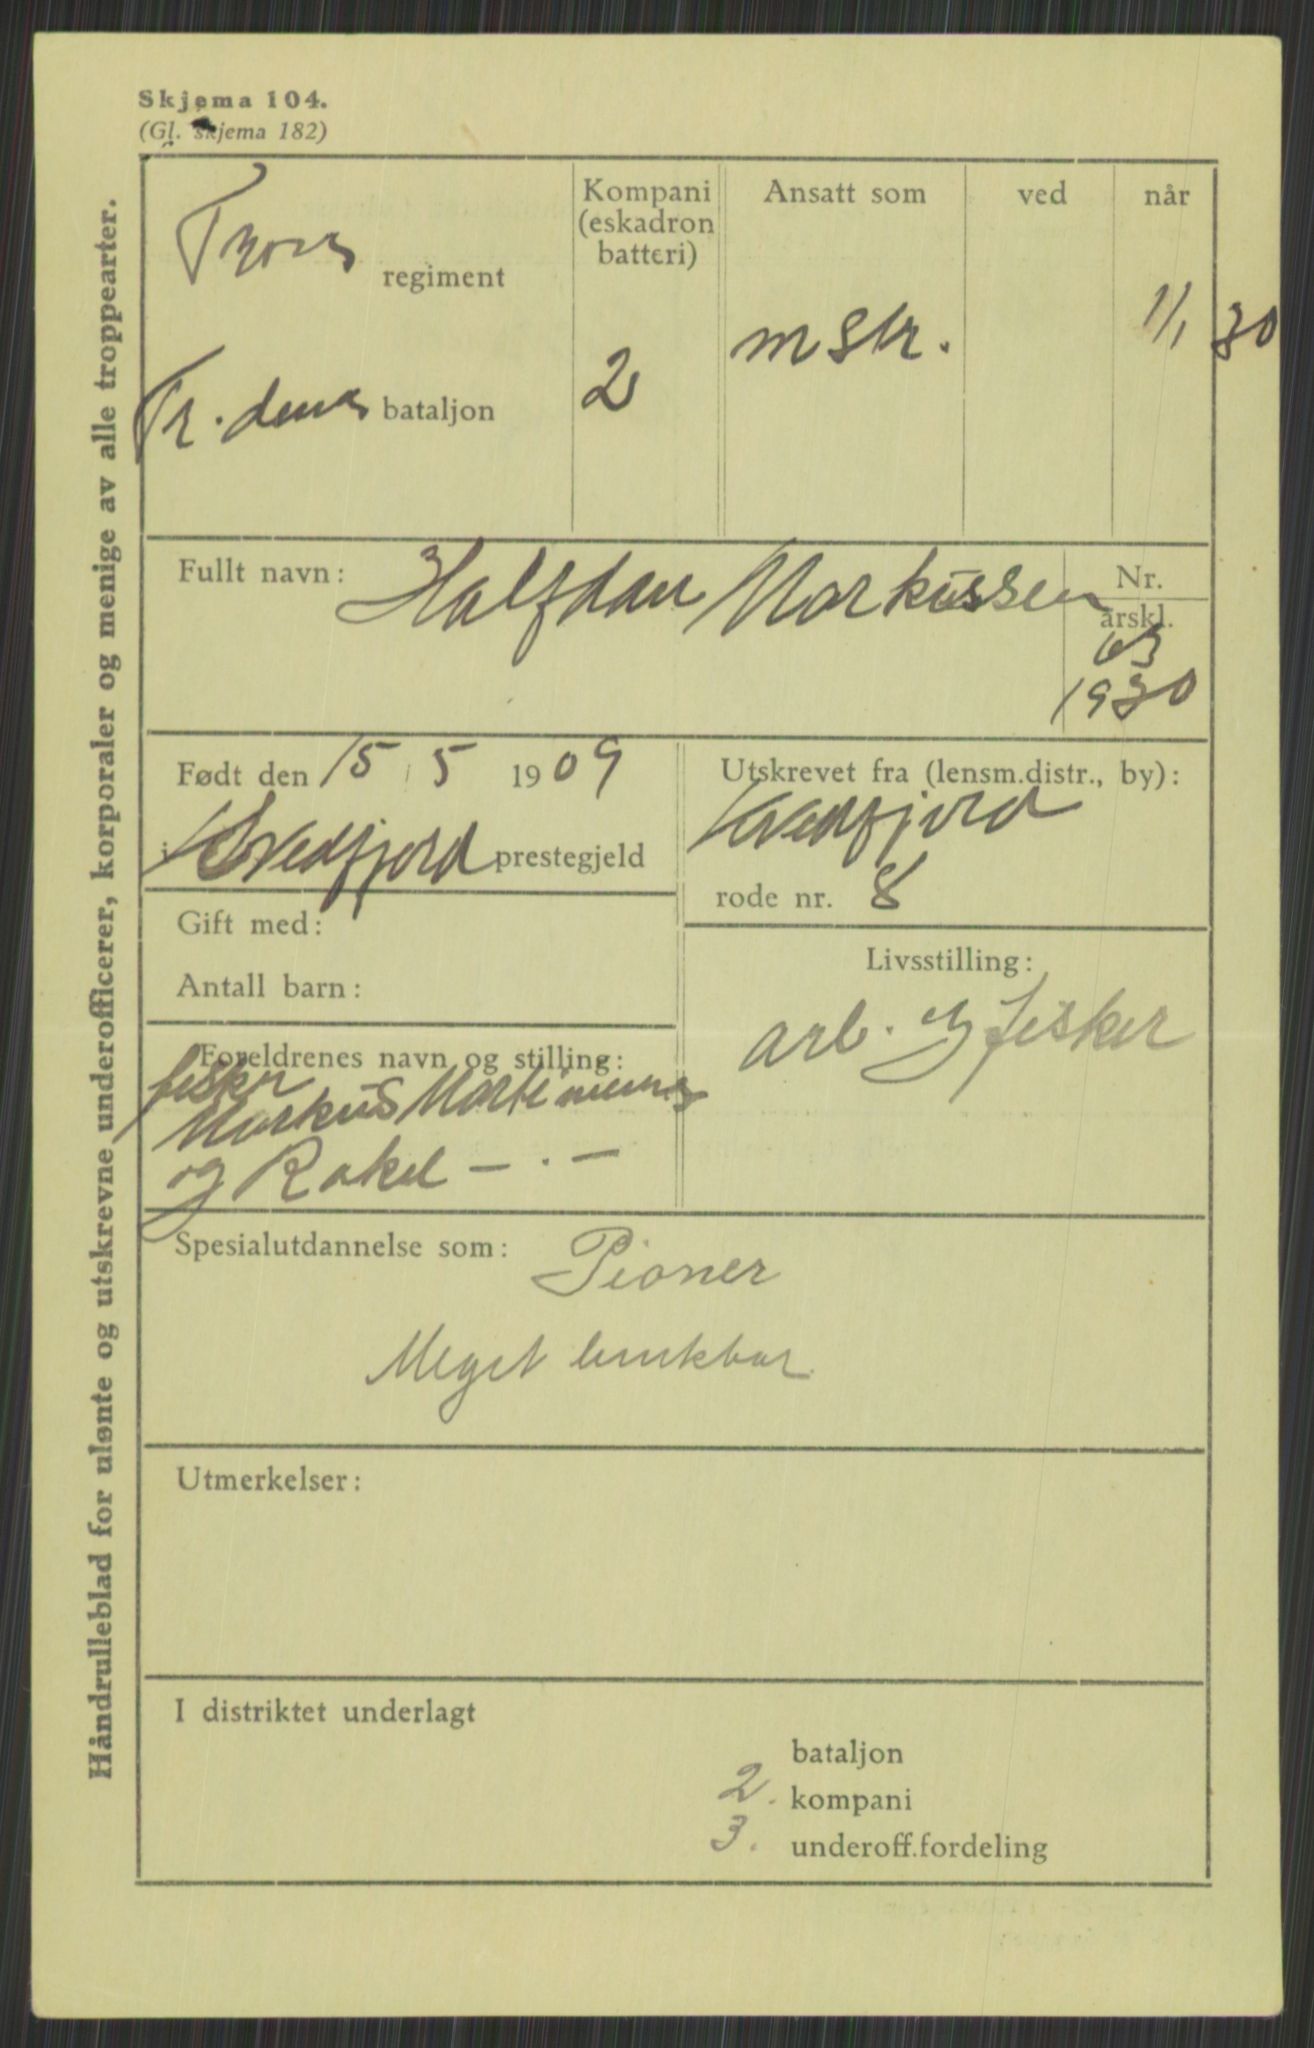 Skjema 104.
(Gl. skjema 182)
Håndrulleblad for ulønte og utskrevne underofficerer, korporaler og menige av alle troppearter.
Troms regiment
Kompani
(eskadron
batteri)
Ansatt som
ved
når
Tr. denes bataljon
2
mskr.
1/1 30
Fullt navn: Halfdan Markussen
Nr.
årskl.
63
1930
Født den 15 5 1909
i Kvedfjord prestegjeld
Utskrevet fra (lensm.distr., by):
Kvedfjord
rode nr. 8
Gift med:
Antall barn:
Livsstilling:
arb. og fisker
Foreldrenes navn og stilling:
fisker
Markus
og Rakel — . —
Spesialutdannelse som: Pioner
Meget brukbar
Utmerkelser:
I distriktet underlagt
bataljon
2. kompani
3. underoff.fordeling